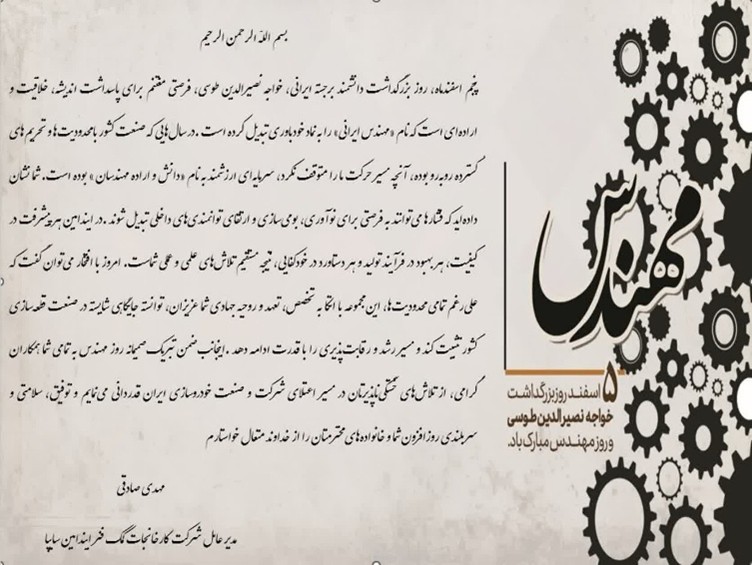 بسم الله الرحمن الرحیم
پنجم اسفندماه، روز بزرگداشت دانشمند برجسته ایرانی، خواجه نصیرالدین طوسی، فرصتی مغتنم برای پاسداشت اندیشه، خلاقیت و
اراده‌ای است که نام «مهندس ایرانی» را به نماد خودباوری تبدیل کرده است .در سال‌هایی که صنعت کشور با محدودیت‌ها و تحریم های
گسترده روبه‌رو بوده، آنچه مسیر حرکت ما را متوقف نکرد، سرمایه‌ای ارزشمند به نام «دانش و اراده مهندسان » بوده است. شما نشان
داده‌اید که فشارها می‌توانند به فرصتی برای نوآوری، بومی‌سازی و ارتقای توانمندی‌های داخلی تبدیل شوند .در ایندامین هر پیشرفت در
کیفیت، هر بهبود در فرآیند تولید و هر دستاورد در خودکفایی، نتیجه مستقیم تلاش‌های علمی و عملی شماست. امروز با افتخار می‌توان گفت که
علی‌رغم تمامی محدودیت‌ها، این مجموعه با اتکا به تخصص، تعهد و روحیه جهادی شما عزیزان، توانسته جایگاهی شایسته در صنعت قطعه‌سازی
کشور تثبیت کند و مسیر رشد و رقابت‌پذیری را با قدرت ادامه دهد .اینجانب ضمن تبریک صمیمانه روز مهندس به تمامی شما همکاران
گرامی، از تلاش‌های خستگی‌ناپذیرتان در مسیر اعتلای شرکت و صنعت خودروسازی ایران قدردانی می‌نمایم و توفیق، سلامتی و
سربلندی روزافزون شما و خانواده‌های محترمتان را از خداوند متعال خواستارم
مهدی صادقی
مدیر عامل شرکت کارخانجات کمک فنر ایندامین سایپا
مهندس
۵ اسفند روز بزرگداشت
خواجه نصیرالدین طوسی
و روز مهندس مبارک باد.